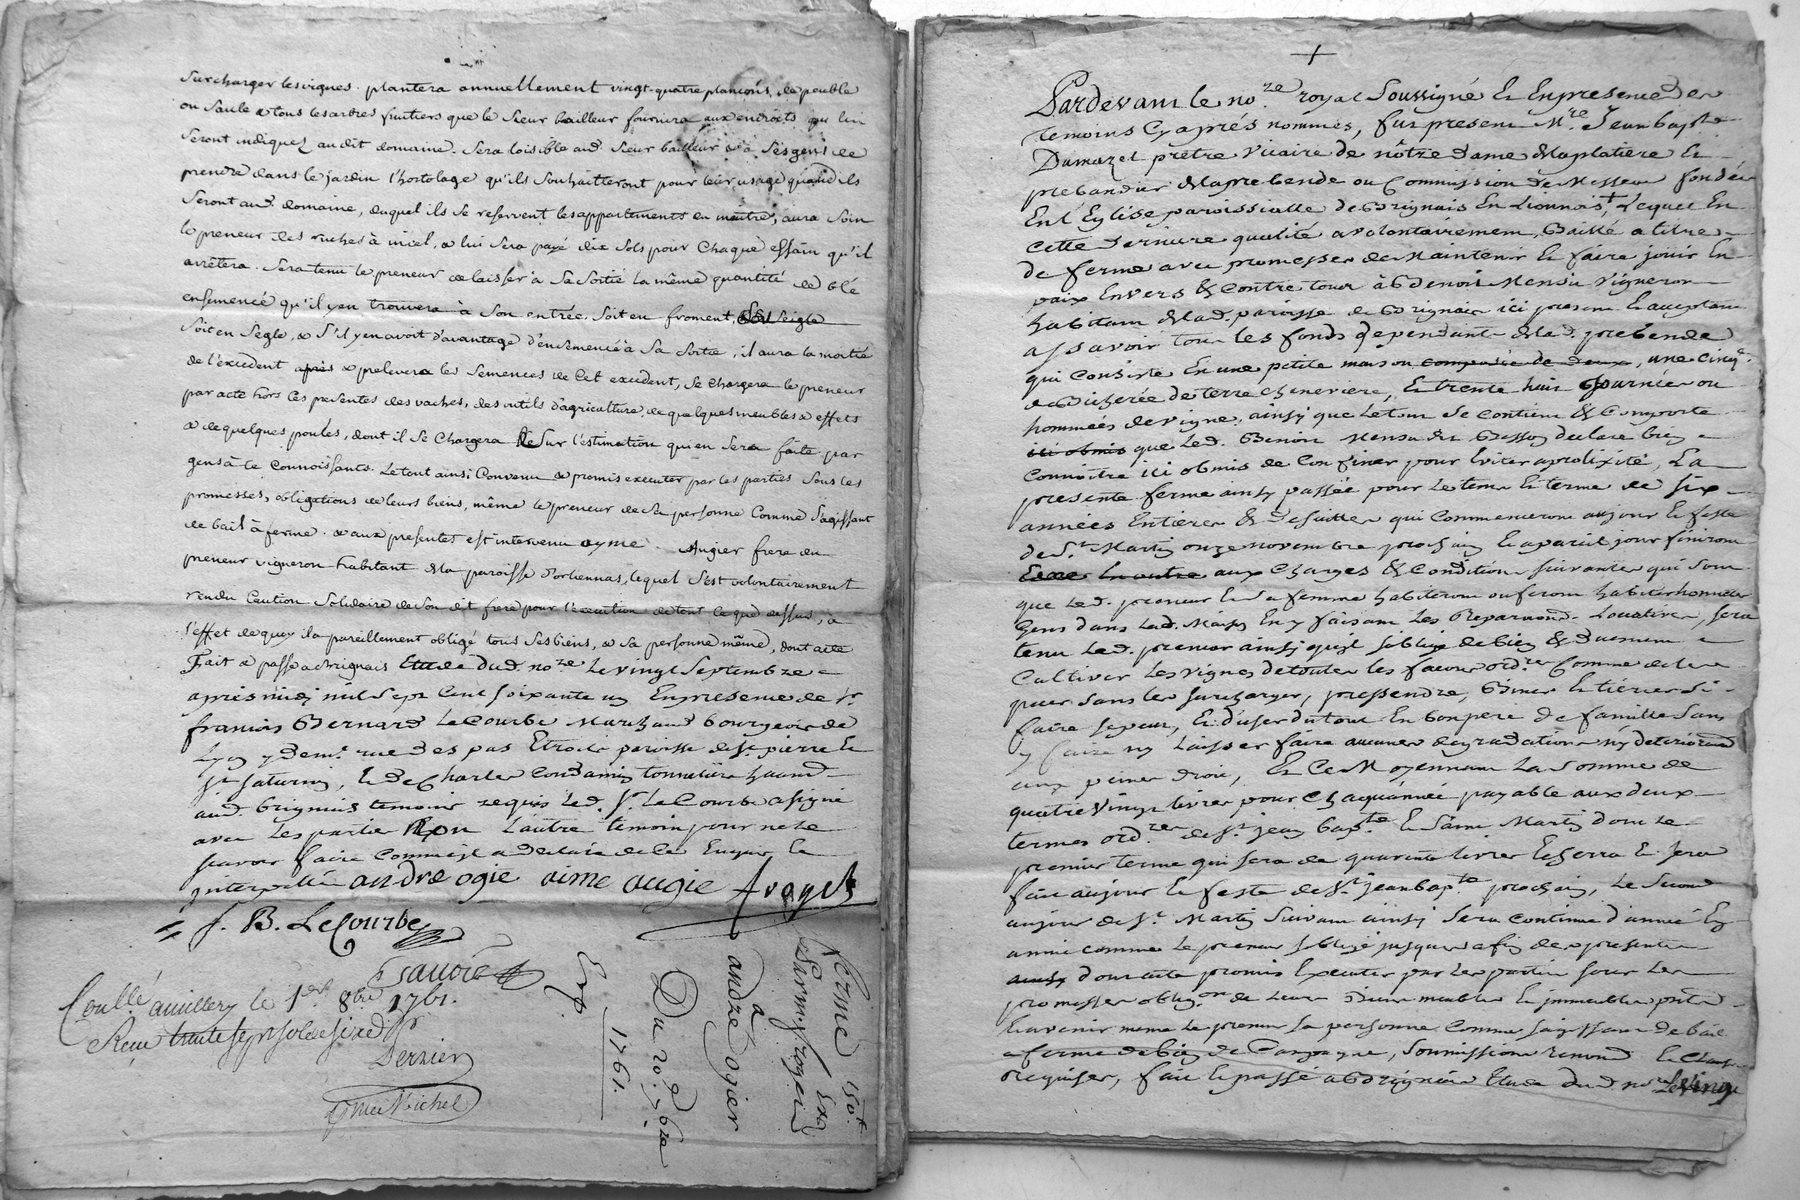 surcharger les vignes. plantera annuellement vingt-quatre plançons de peuble
ou saule & tous les arbres fruitiers que le sieur bailleur fournira aux endroits qui lui
seront indiquez au dit domaine. sera loisible aud. sieur bailleur & à ses gens de
prendre dans le jardin l'hortolage qu'ils souhaitteront pour leur usage quand ils
seront aud. domaine, duquel ils se reservent les appartements du maitre, aura soin
le preneur des ruches à miel, & lui sera payé dix sols pour chaque essain qu'il
arrêtera. sera tenu le preneur de laisser à sa sortie la même quantité de blé
ensemencé qu'il y en trouvera à son entrée, soit en froment, seigle
soit en segle, & s'il y en avoit d'avantage d'ensemencé à sa sortie, il aura la moitié
de l'excedent après & prelevera les semences de cet excedent, se chargera le preneur
par acte hors ces presentes des vaches, des outils d'agriculture, de quelques meubles & effets
& de quelques poules, dont il se chargera sur l'estimation qui en sera faite par
gens à ce connoissants. Le tout ainsi convenu & promis executer par les parties sous les
promesses, obligations de leurs biens, même le preneur de sa personne comme s'agissant
de bail à ferme. & aux presentes est intervenu ayme Augier frere du
preneur vigneron habitant de la paroisse d'orliennas, lequel s'est volontairement
rendu caution solidaire de son dit frere pour l'execution de tout ce que dessus, à
l'effet de quoy il a pareillement obligé tous ses biens, & sa personne même, dont acte
Fait & passé a Brignais Etude dud. no.re Le vingt septembre
apres midy mil sept cent soixante un En presence de s.r
francois Bernard Le Courbe Marchand bourgeois de
Lyon y dem.t rue des pas Etroits paroisse de s.t pierre Et
s.t saturnin, Et de Charles Condamin tonnelier habitant
aud. brignais temoins requis Led. s.r Le Courbe a signé
avec Les parties non L'autre temoin pour ne le
scavoir faire comme il a declaré de ce Enquis Et
interpellé andre ogie aime augie
f. B. LeCourbe
Conllé a millery le 1er 8bre 1761.
Recu trente sept sols six d.rs
Dernier
Michel
Ferme 150tt
andré ogier
Du 20.e 7bre
1761.
Exp.
+
Pardevant le no.re royal soussigné Et En presence des
temoins cy après nommés, fut present M.re Jean bapt.te
Dumazel prêtre vicaire de nôtre dame de la platiere Et
prebandier de la prebende ou Commission de Messes fondée
En l'Eglise paroissialle de Brignais En Lionnois, Lequel En
cette derniere qualité a volontairement, Baillé a titre
de ferme avec promesses de Maintenir Et faire jouir En
paix Envers & contre tous à Benoit vigneron
habitant de lad. paroisse de Brignais ici present Et acceptant
assavoir tous les fonds dependants de lad. prebende
qui consiste En une petite maison composée de deux, une cinq.
de Bicherée de terre cheneviere, Et trente huit journées ou
hommées de vigne, ainsy que Le tout se contient & Comporte
ici obmis que Led. Benoit declare bien
connoitre ici obmis de confiner pour Eviter a prolixité, La
presente ferme ainsy passée pour Le tems Et terme de six
années Entieres & desuittes qui commenceront au jour Et feste
de S.t Martin onze novembre prochain Et a pareil jour finiront
aux charges & Conditions suivantes qui sont
que Led. preneur Et sa femme habiteront ou feront habiter honnêtes
Gens dans Lad. Maison En y faisant Les Reparations Locatives, sera
tenu Led. preneur ainsy qu'il s'oblige de bien & duement
Cultiver Les vignes de toutes les facons ord.res Comme de les
sans les surcharger, Biner Et tiercer si
faire se peut, Et d'user du tout En bon pere de famille sans
y faire ny Laisser faire aucunes degradations ny deteriorations
aux peines de droit, Et Ce Moyennant La somme de
quatre vingt livres pour Chaque année payable aux deux
termes ord.res de s.t jean bap.te Et saint Martin dont Le
premier terme qui sera de quarante livres Echerra Et sera
fait au jour Et feste de s.t jean bap.te prochain, Le second
au jour de s.t Martin suivant ainsy sera continué d'année En
année comme Le preneur s'oblige jusques a fin des presentes
ainsy dont acte promis Executer par Les parties sous Les
promesses oblig.on de Leurs biens meubles Et immeubles pnts
Et avenir meme Le preneur sa personne comme s'agissant de bail
a ferme de bien de Campagne, soumissions renon.ons Et clauses
requises, fait Et passé a Brignais Etude dud. no.re Le vingt